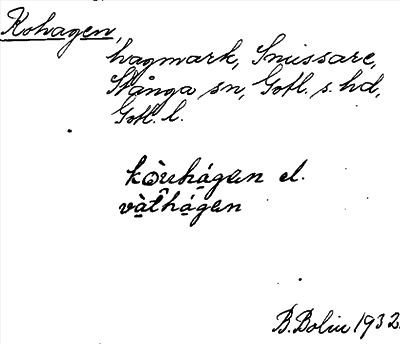 Kohagen,
hagmark, Snissare,
Stånga sn, Gotl. s. hd,
Gotl. l.
hágen el.
hágen
B. Bolin 1932.